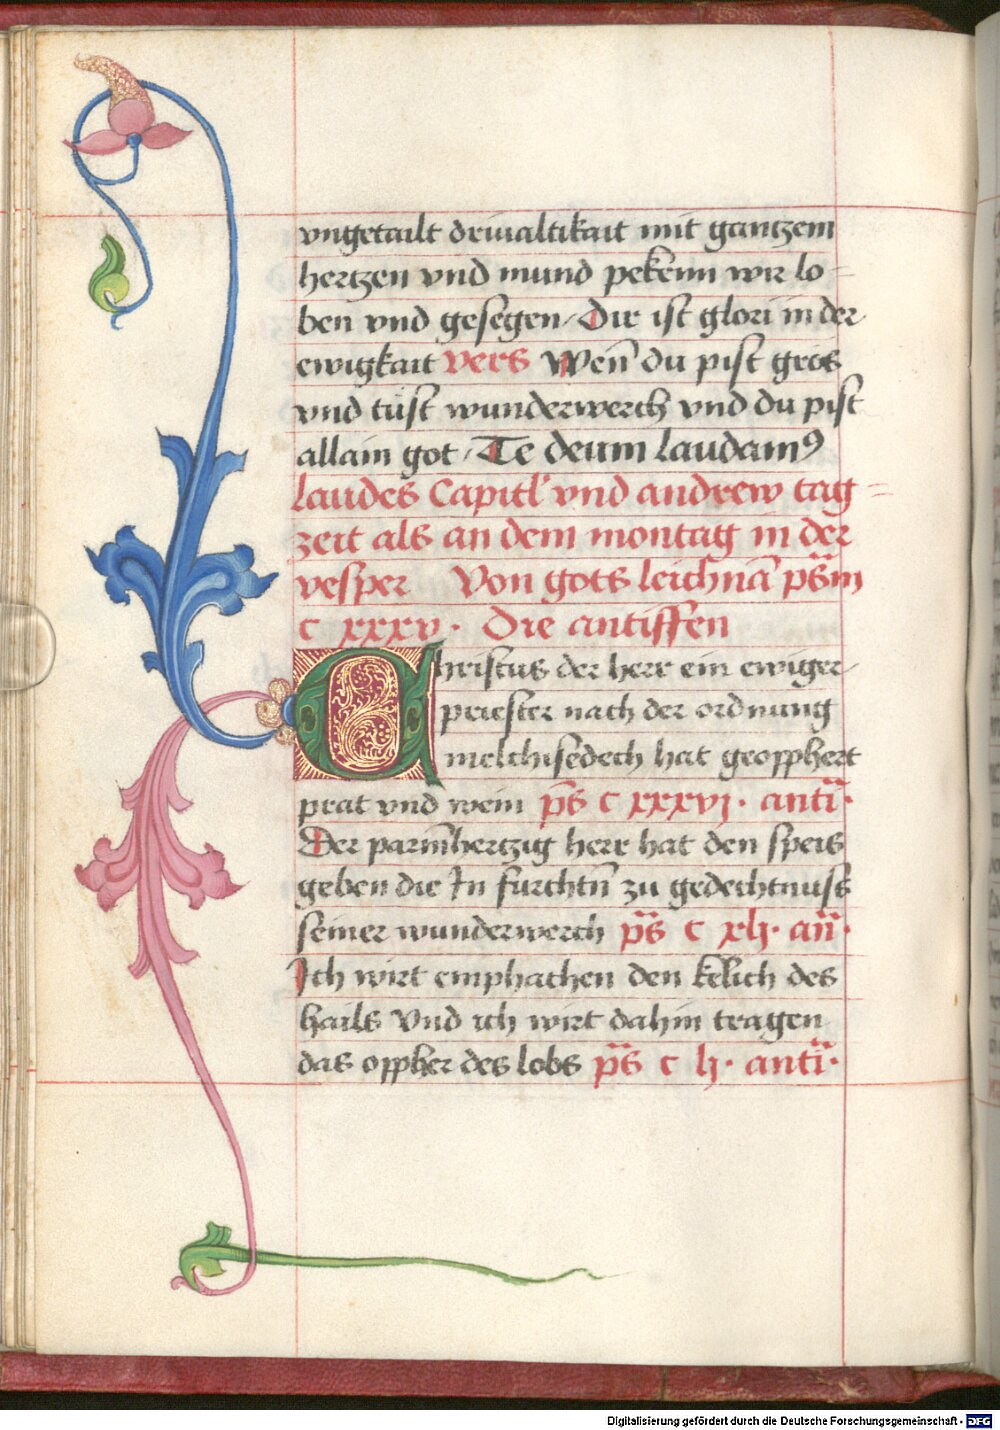 vngetailt driualtikait mit gantzem
hertzen vnd mund pekenn wir lo-
ben vnd gesegen / Dir ist glori in der
ewigkait vers Wen̄ du pist gros
vnd tuͤst wunderwerch vnd du pist
allain got / Te deum laudamꝰ
Laudes Capitl̕ vnd andrew tag=
zeit als an dem montag in der
vesper Von gots leichnā ps̈m
c xxxv · Die antiffen
Christus der herr ein ewiger
priester nach der ordnung
melchisedech hat geopphert
prat vnd wein ps̄ c xxxvj · anti̅ ·
Der parm̄hertzig herr hat den speis
geben die In furchtn̄ zu gedechtnuss
seiner wunderwerch ps̈ c xlj · an̈ ·
Ich wirt emphachen den kelich des
hails Vnd ich wirt dahin tragen
das oppher des lobs ps̈ c lj · anti̅ ·
Digitalisierung gefördert durch die Deutsche Forschungsgemeinschaft - DFG